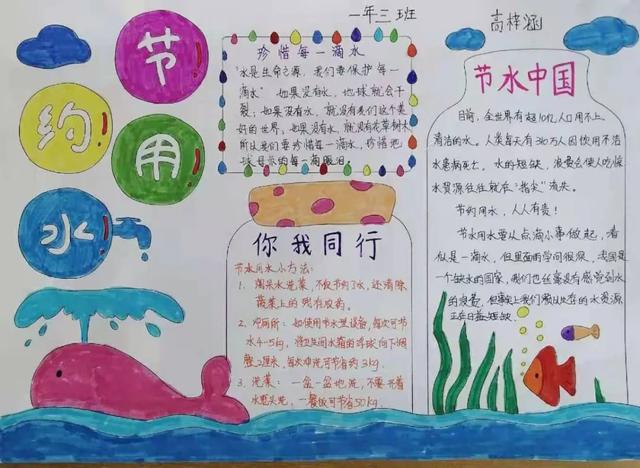 一年三班
高梓涵
节
约
用
水
珍惜每一滴水
"水是生命之源,我们要保护每一
滴水"如果没有水,地球就会干
裂;如果没有水,就没有我们这个美
好的世界,如果没有水,就没有花草树木
所以我们要珍惜每一滴水,珍惜地
球母亲的每一滴眼泪。
你我同行
节水用水小方法:
1、淘米水洗菜,不仅节约了水,还清除
蔬菜上的残存农药。
2、冲厕所:如使用节水型设备,每次可节
水4-5kg,将卫生间水箱的浮球向下调
整2厘米,每次冲洗可节省约3kg.
3、洗菜:一盆一盆地洗,不要开着
水龙头洗,一餐饭可节省50kg.
节水中国
目前,全世界有超10亿人口用不上
清洁的水。人类每天有 万人因饮用不洁
水患病死亡。水的短缺,浪费会使人吃惊
水资源往往就在"指尖"流失。
节约用水,人人有责!
节水用水要从点滴小事做起,看
似是一滴水,但里面的学问很深,我国是
一个缺水的国家,我们也丝毫没有感觉到水
的浪费,但事实上我们赖以生存的水资源
正在日益短缺.